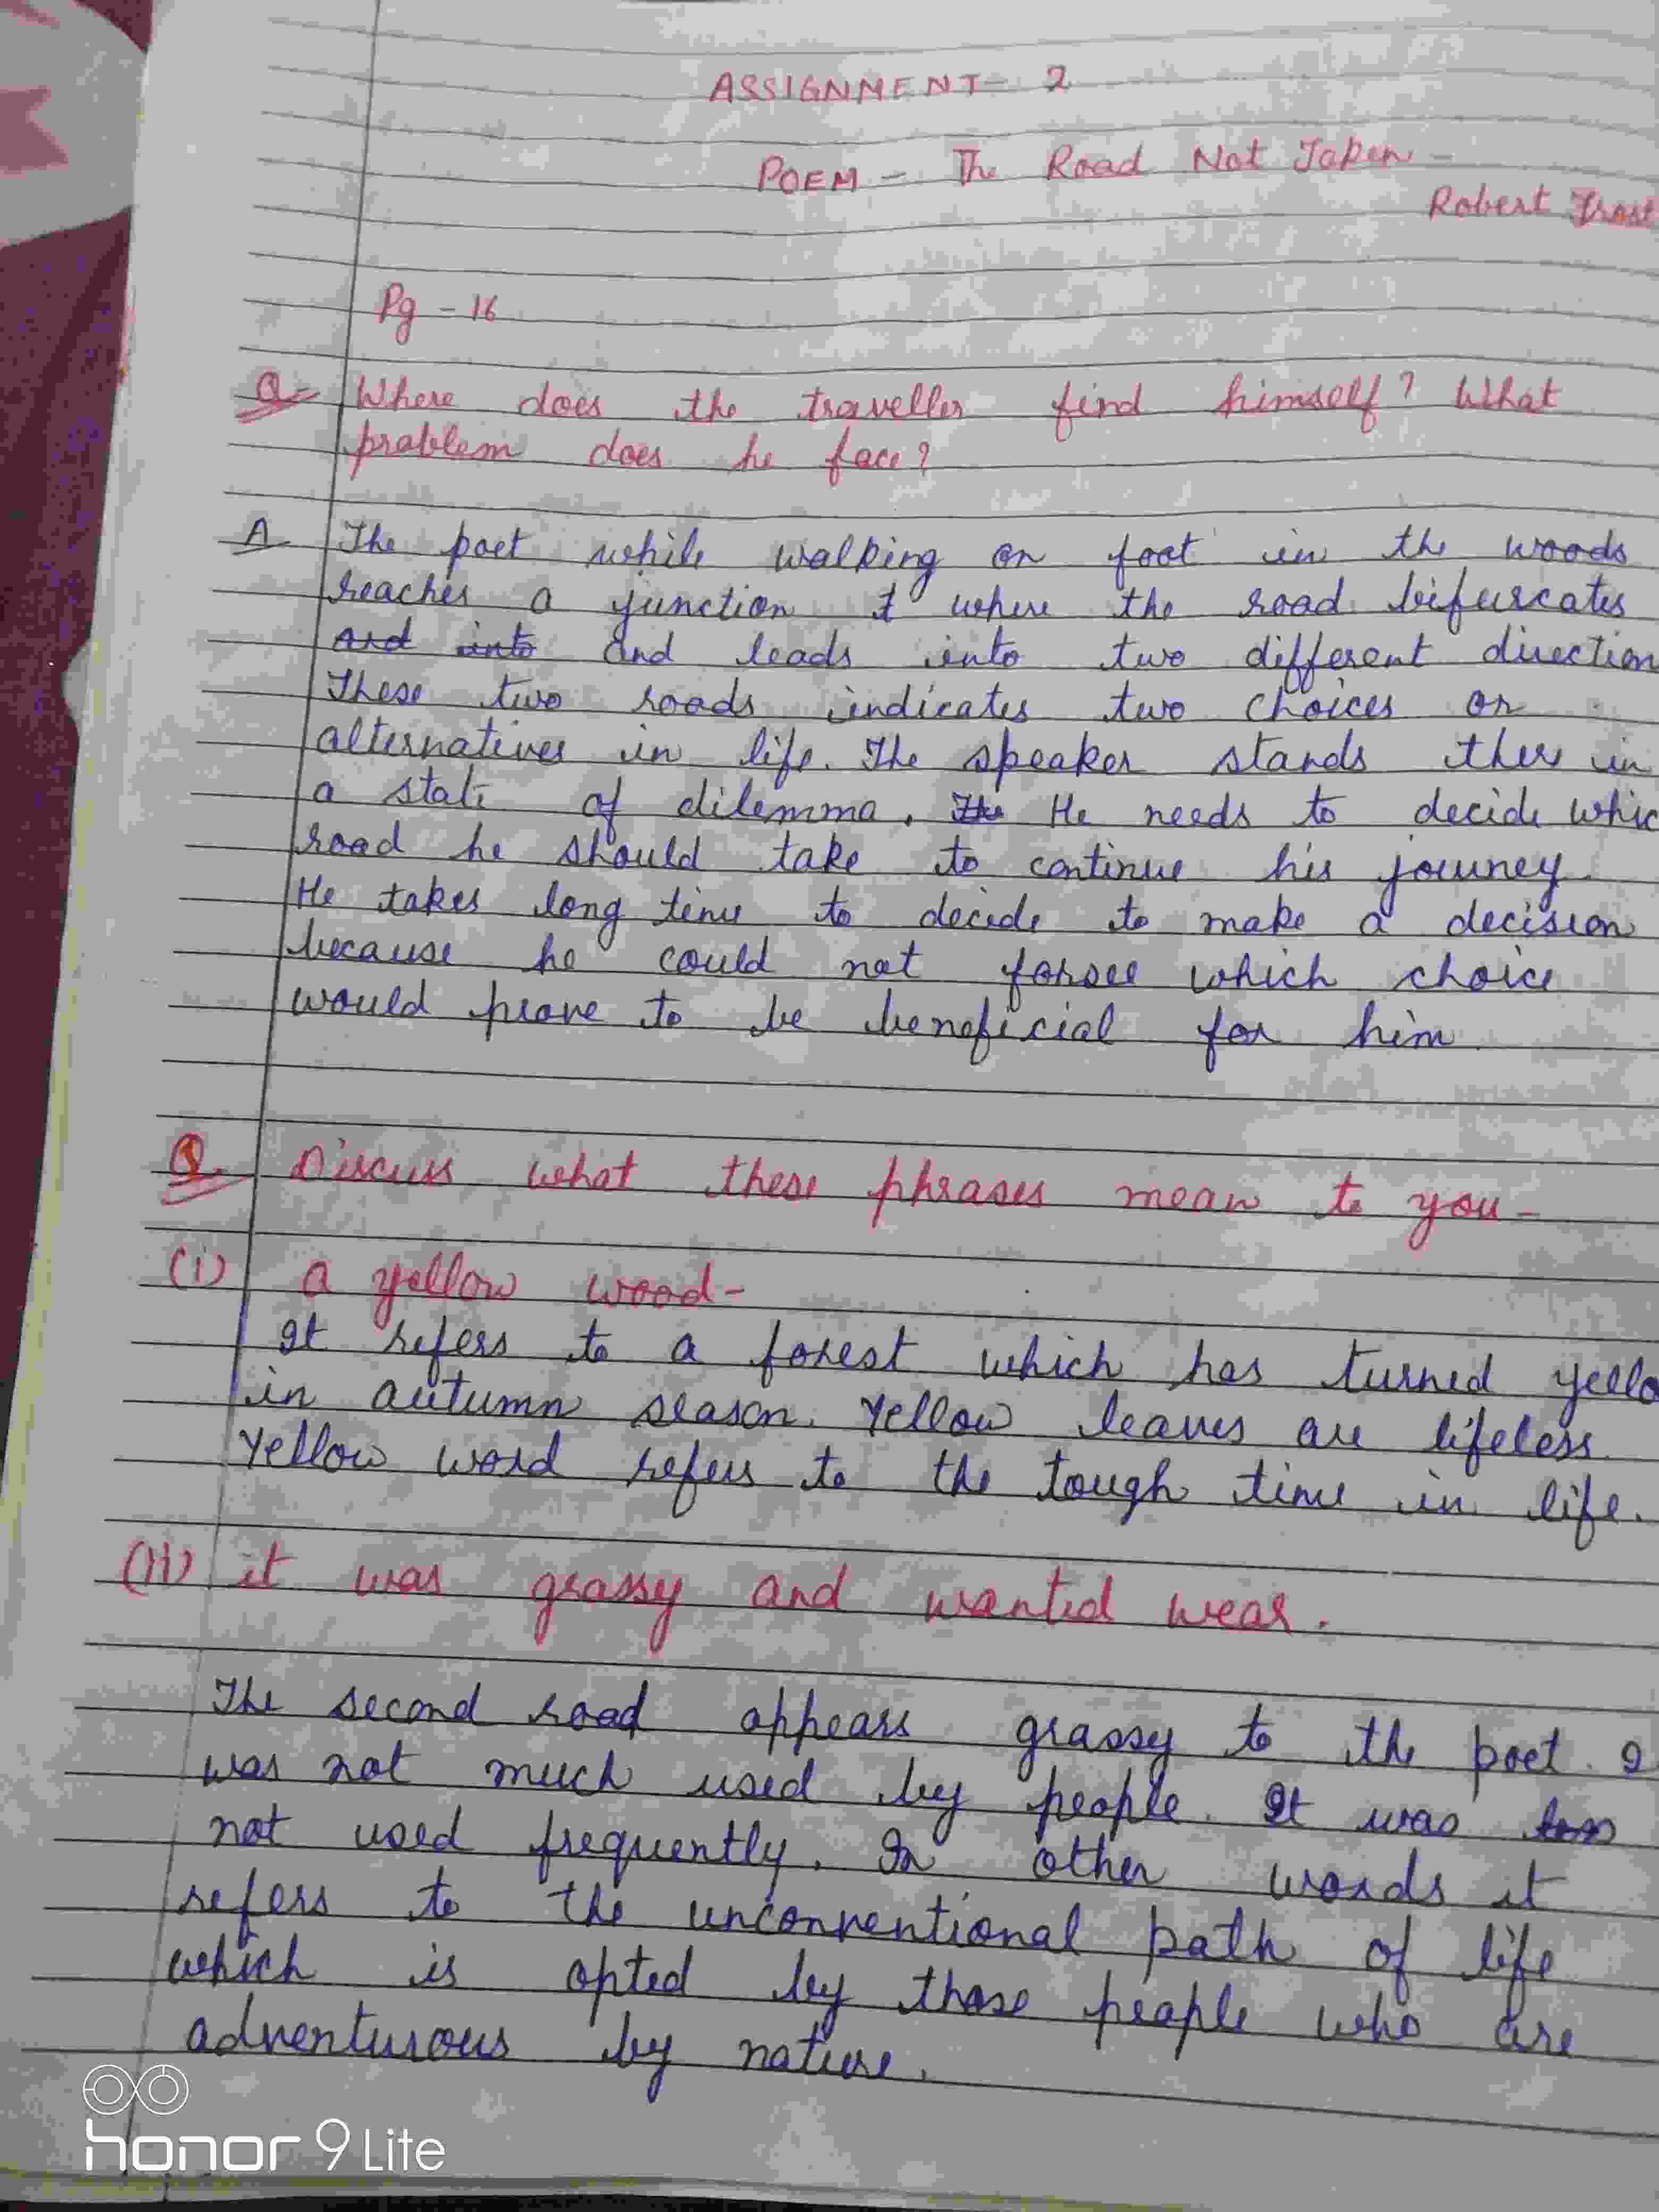 ASSIGNMENT - 2
POEM - The Road Not Taken -
Robert Frost
Pg - 16
Q- Where does the traveller find himself? What
problem does he face?
A The poet while walking on foot in the woods
reaches a junction where the road bifurcates
and into and leads into two different direction
These two roads indicates two choices or
alternatives in life. The speaker stands there in
a state of dilemma. The He needs to decide whic
road he should take to continue his journey
He takes long time to decide to make a decision
because he could not forsee which choice
would prove to be beneficial for him.
Q. Discuss what these phrases mean to you -
(i) a yellow wood -
It refers to a forest which has turned yello
in autumn season. Yellow leaves are lifeless.
Yellow word refers to the tough time in life.
(ii) it was grassy and wanted wear.
The second road appears grassy to the poet.
was not much used by people. It was
not used frequently. In other words it
refers to the unconventional path of life
which is opted by those people who are
adventurous by nature.
honor 9 Lite